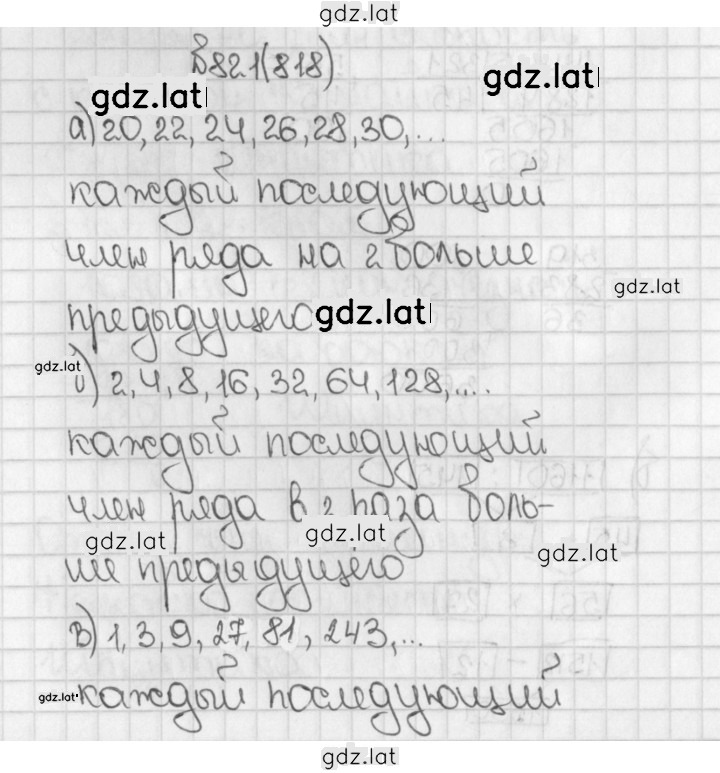 gdz.lat
№821(818)
gdz.lat
gdz.lat
а) 20, 22, 24, 26, 28, 30, ...
каждый последующий
член ряда на 2 больше
gdz.lat
предыдущего gdz.lat
gdz.lat
б) 2, 4, 8, 16, 32, 64, 128, ...
каждый последующий
член ряда в 2 раза боль-
gdz.lat gdz.lat gdz.lat
ше предыдущего
в) 1, 3, 9, 27, 81, 243, ...
gdz.lat каждый последующий
gdz.lat